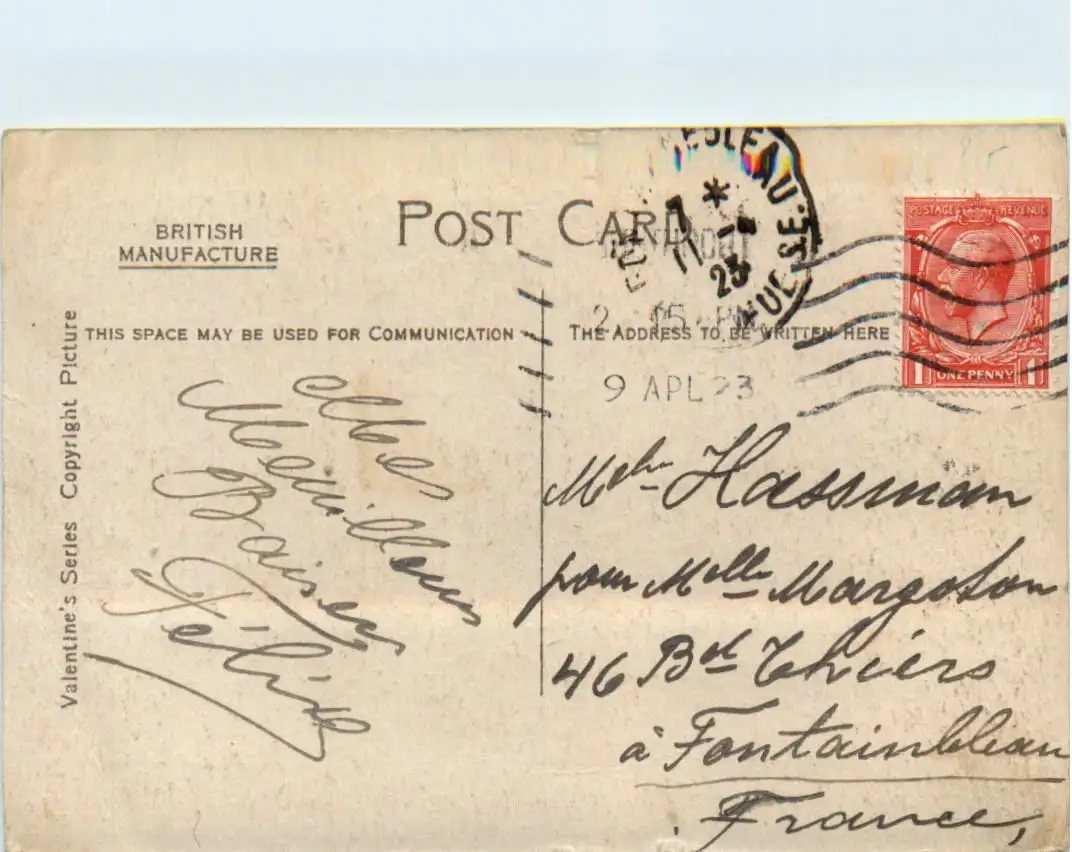 POST CARD
BRITISH
MANUFACTURE
THIS SPACE MAY BE USED FOR COMMUNICATION
THE ADDRESS TO BE WRITTEN HERE
Valentine's Series Copyright Picture
POSTAGE REVENUE
1 ONE PENNY 1
EBLEAU
7 *
11
23
9 APL 23
Mes
Meilleurs
Baisers
Mme Hassman
pour Melle Margoton
46 Bd Thiers
à Fontainbleau
France,